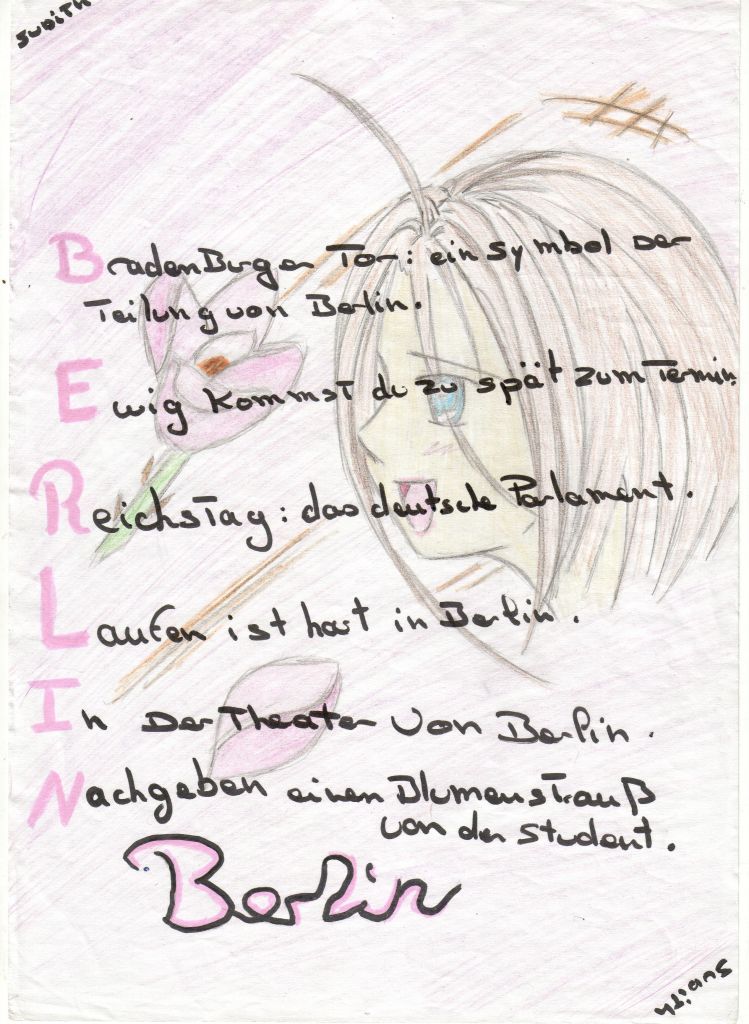 Judith
BradenBurger Tor: ein symbol Der
Teilung von Berlin.
Ewig Kommst du zu spät zum Termin
ReichsTag: das deutsche Parlament.
Laufen ist hart in Berlin.
In Der Theater von Berlin.
Nachgeben einen Blumenstrauß
von der student.
Berlin
Judith